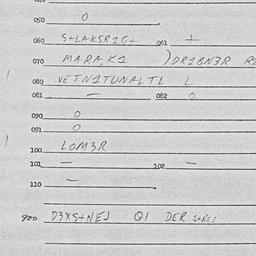 050 0
060 S+LAKSRIG+ 061 +
070 MARA,K1 )DRIBN3R
080 VETN1TUNALTL L
081 — 082 0
090 0
091 0
100 LOM3R
101 — 102 —
110 —
900 D3XS+NEJ QI DER